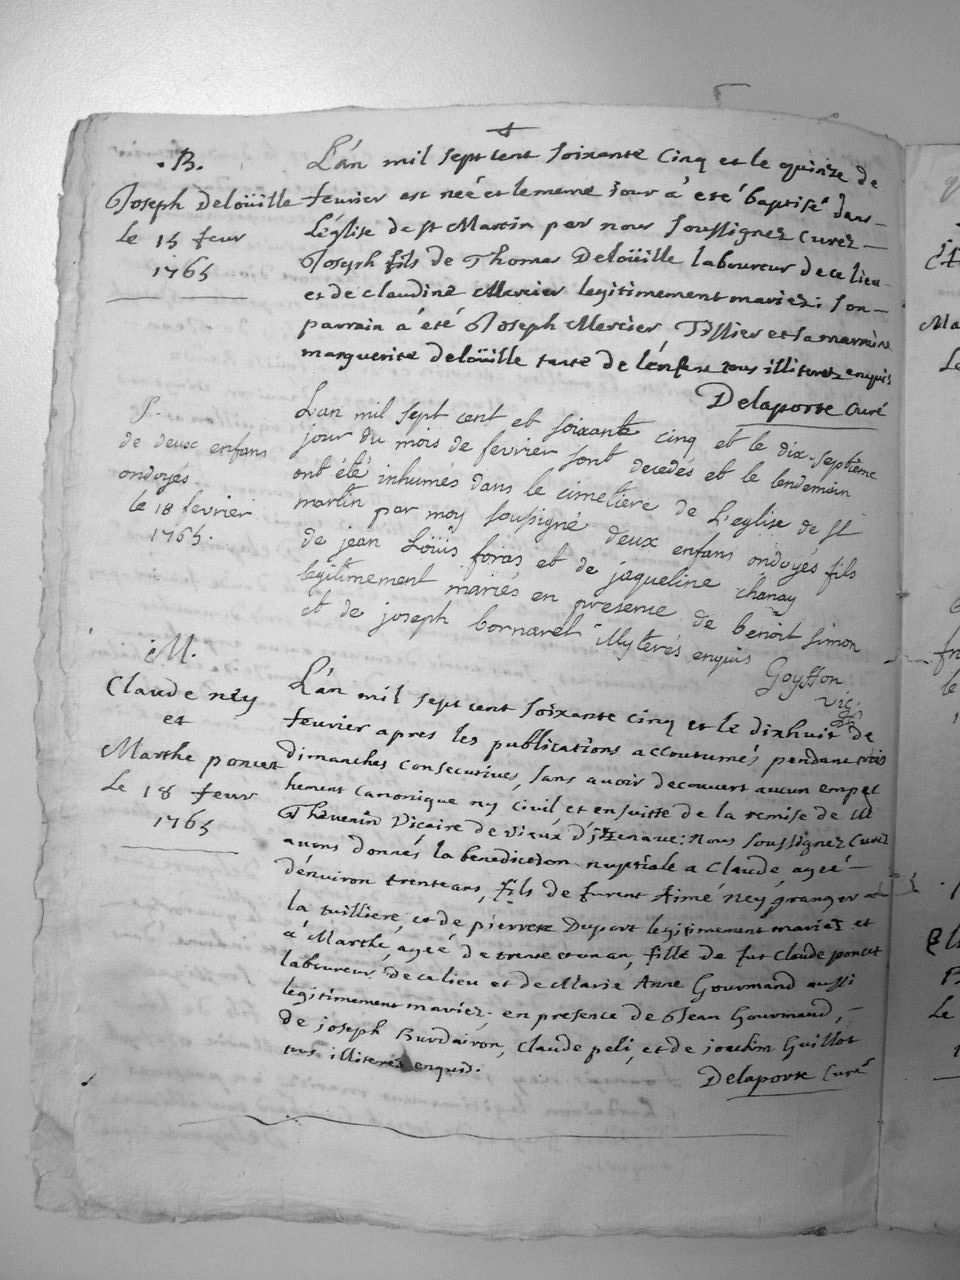 .B.
Joseph Deloüille
Le 15 feur
1765
L'án mil sept cent soixante Cinq et le quinze de
fevrier est neé et le meme jour a été baptisé dans
L'église de st Martin par nous soussignez Curez
Joseph fils de Thomas Deloüille laboureur de ce lieu
et de claudine Mercier legitimement mariez: son
parrain á été Joseph Mercier, Tissier et sa marraine
marguerite deloüille tante de l'enfant tous illiterez enquis
Delaporte Curé
S.
de deux enfans
ondoyés
le 18 fevrier
1765.
L'an mil sept cent et soixante cinq et le dix-septieme
jour du mois de fevrier sont decedés et le lendemain
ont été inhumés dans le cimetiere de L'eglise de St
martin par moy soussigné deux enfans ondoyés fils
de jean Loüis foras et de jaqueline chanay
legitimement mariés en presence de benoit simon
et de joseph bornarel illyterés enquis
Goyffon
vic.
M.
Claude ney
et
Marthe poncet
Le 18 feur
1765
L'án mil sept cent soixante cinq et le dixhuit de
fevrier apres les publications accoutumés pendant trois
dimanches consecutives, sans avoir decouvert aucun empec
hement canonique ny civil et ensuitte de la remise de Mr
Thevenin Vicaire de vieux d'izenave: Nous soussignez Curez
avons donnés la benediction nuptiale a Claude ageé
d'énviron trente ans, fils de furent Aimé ney granger a
la tuilliere, et de pierrete Duport legitimement mariez et
á Marthe, ageé de trente et un an, fille de fut Claude poncet
laboureur de ce lieu et de Marie Anne Gourmand aussi
legitimement mariez. en presence de Jean Gourmand,
de joseph Burdairon, Claude peli, et de joachim Guillot
tous illiterés enquis.
Delaporte Curé